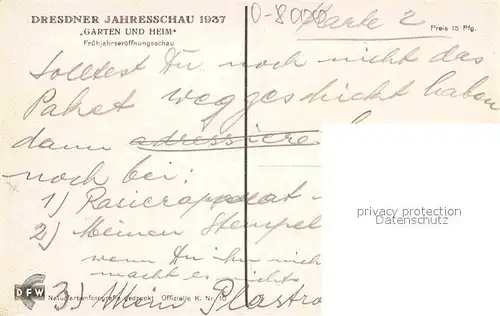 DRESDNER JAHRESSCHAU 1937
„GARTEN UND HEIM“
Frühjahrseröffnungsschau
O-8000
Karte 2
Preis 15 Pfg.
Solltest Du noch nicht das
Paket weggeschickt haben
dann adressiere
noch bei:
1) Rasierapparat -
2) Meinen Stempel
wenn Du ihn nich
macht es nichts
3) Mein Plastro
privacy protection
Ansichtskarten-Center.de
DFW
Naturfarbenfotografie gedruckt Offizielle K. Nr. 10